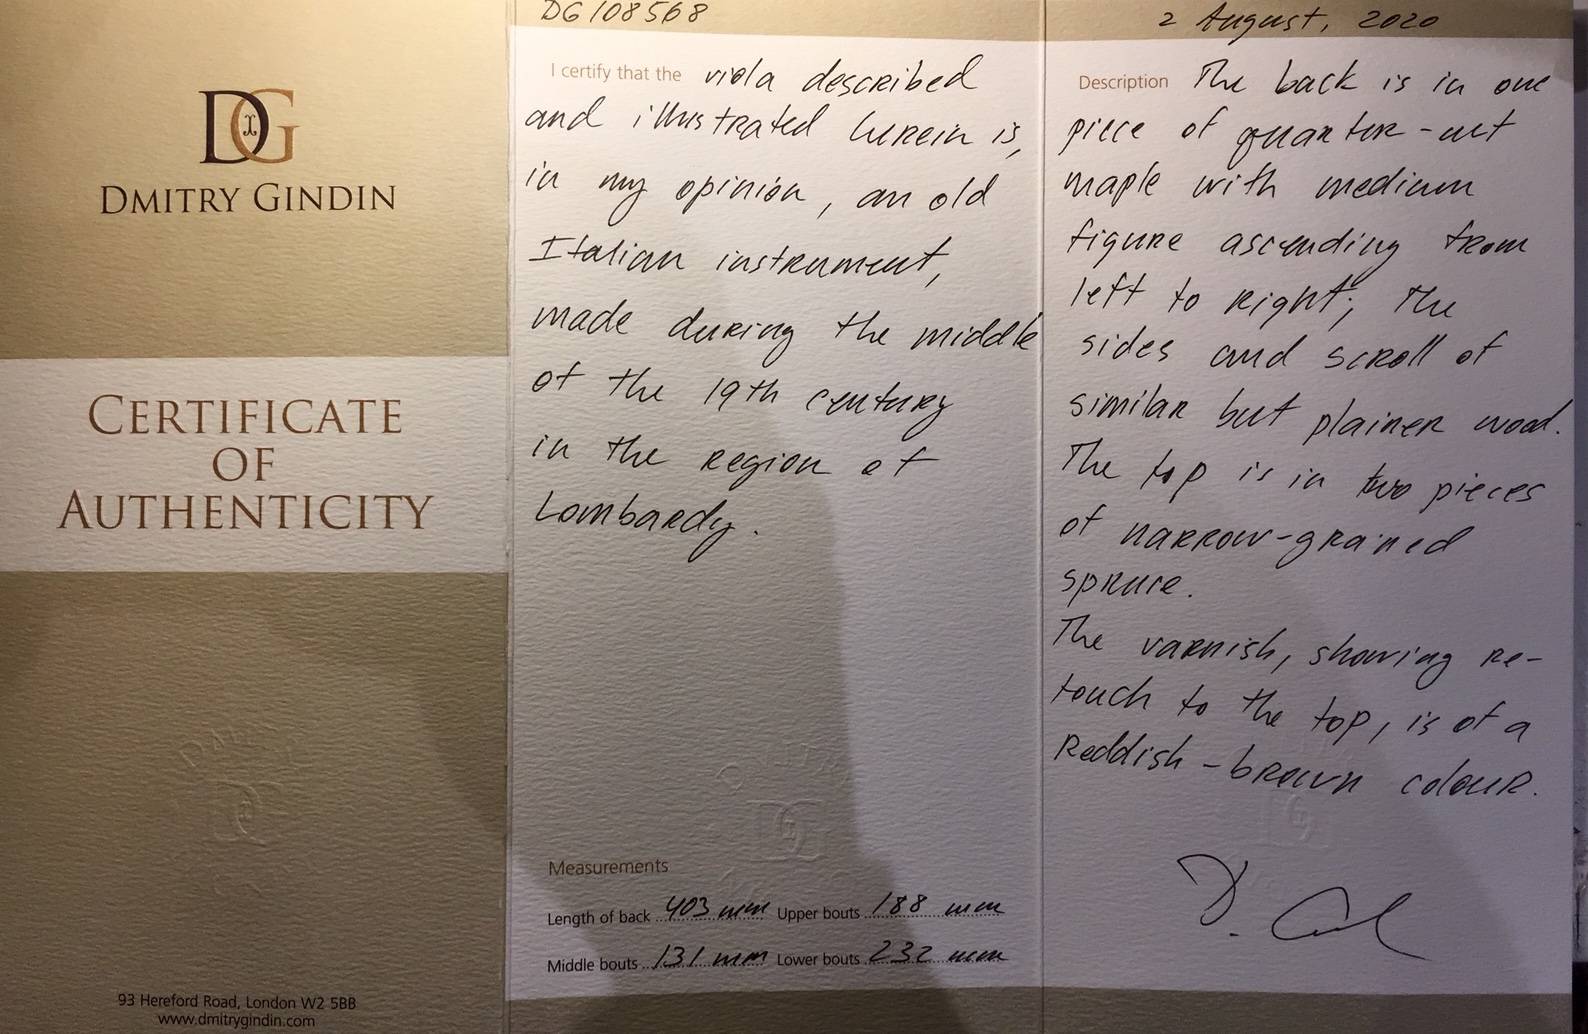 DG
DMITRY GINDIN
CERTIFICATE
OF
AUTHENTICITY
93 Hereford Road, London W2 5BB
www.dmitrygindin.com
DG108568
I certify that the viola described
and illustrated herein is,
in my opinion, an old
Italian instrument,
made during the middle
of the 19th century
in the region of
Lombardy.
Measurements
Length of back 403 mm Upper bouts 188 mm
Middle bouts 131 mm Lower bouts 232 mm
2 August, 2020
Description The back is in one
piece of quarter-cut
maple with medium
figure ascending from
left to right; the
sides and scroll of
similar but plainer wood.
The top is in two pieces
of narrow-grained
spruce.
The varnish, showing re-
touch to the top, is of a
reddish-brown colour.